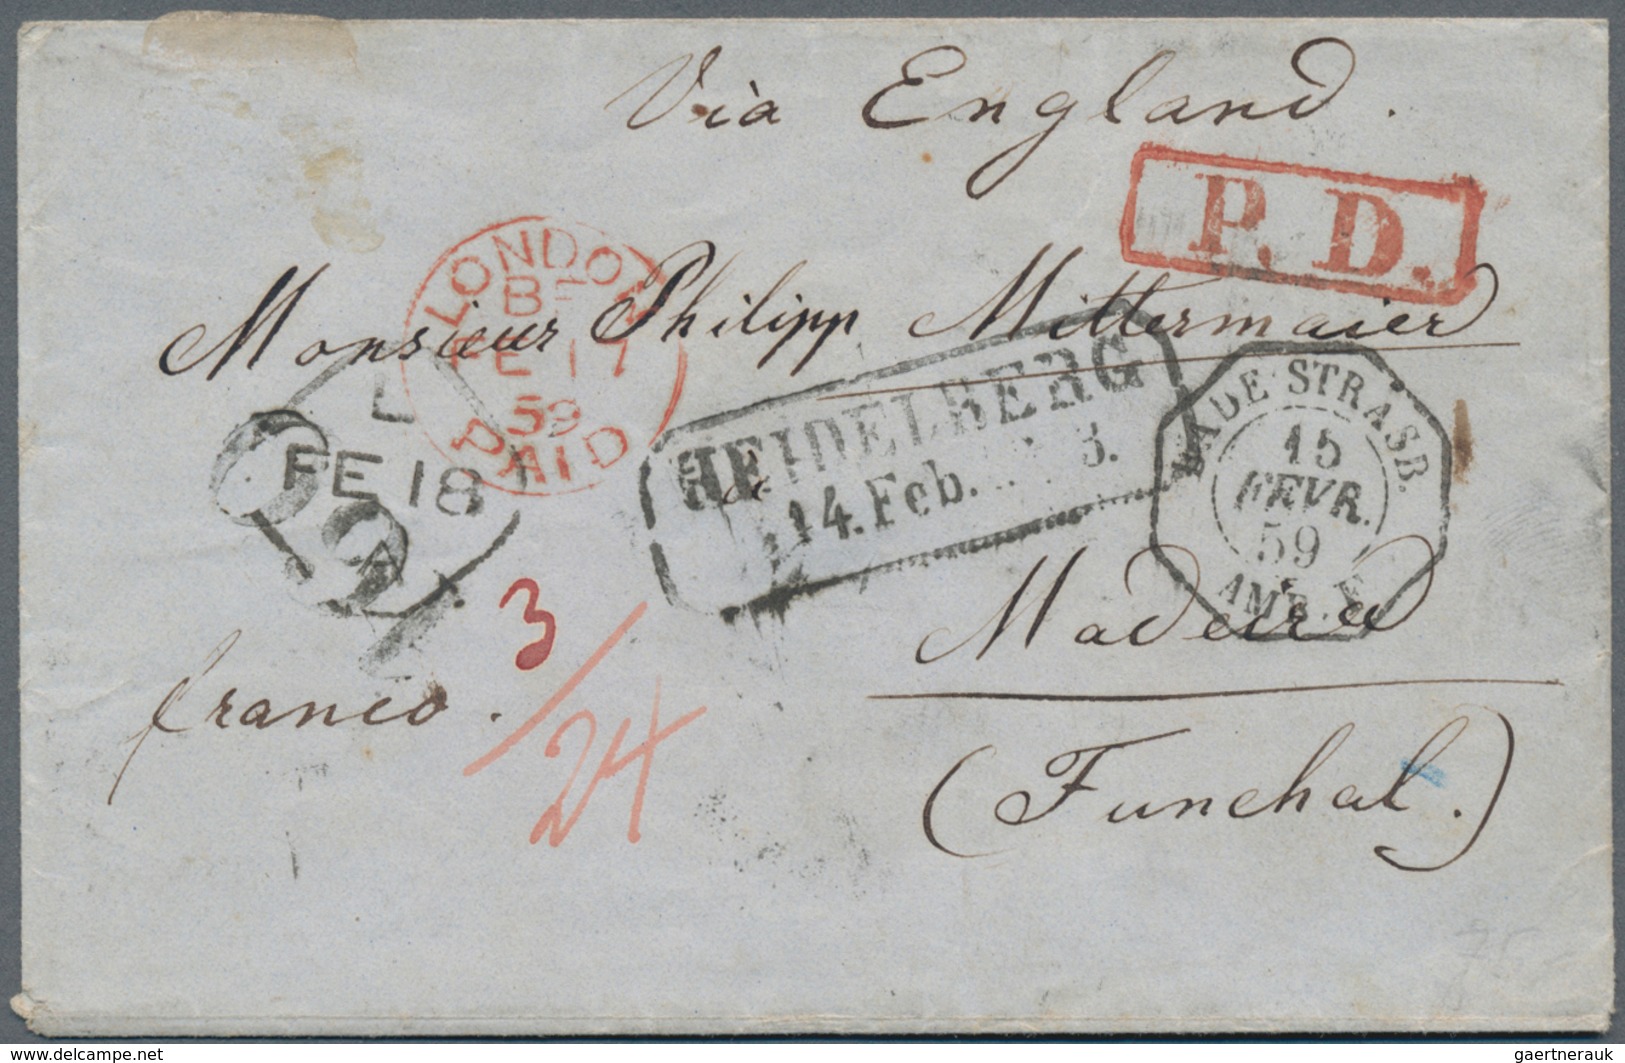 Via England.
P. D.
LONDON
BF
FE 17
59
PAID
Monsieur Philipp Mittermaier
L
FE 18
HEIDELBERG
14. Feb. 3.
STRASB.
15
FEVR.
59
AMB.
Madeira
3
24
franco.
(Funchal.)
75
www.delcampe.net
gaertnerauk